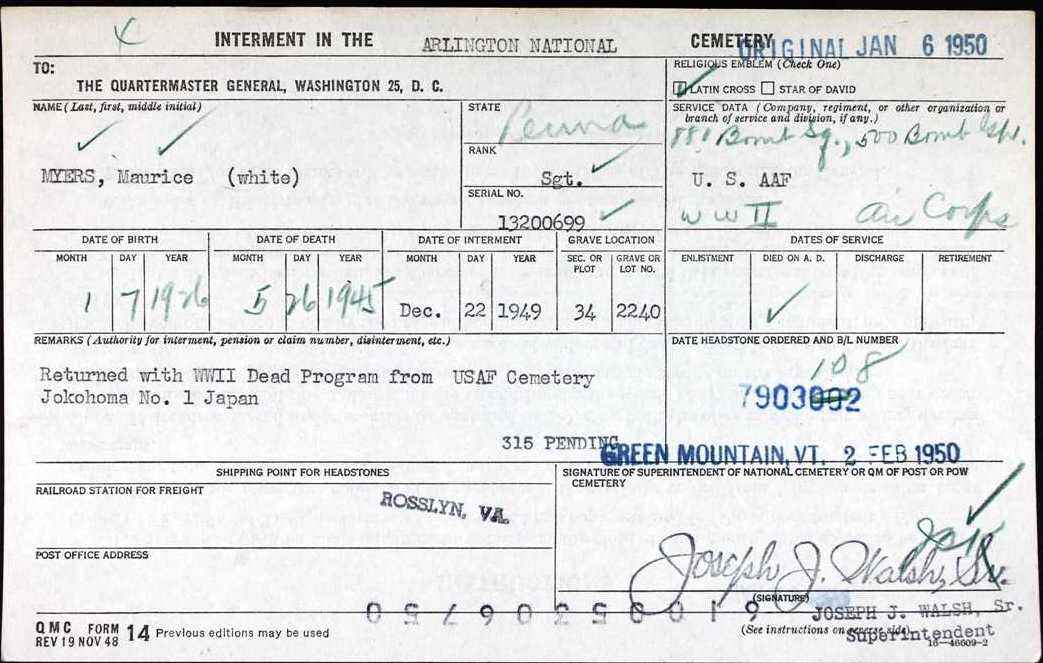 INTERMENT IN THE ARLINGTON NATIONAL CEMETERY ORIGINAL JAN 6 1950
TO:
THE QUARTERMASTER GENERAL, WASHINGTON 25, D. C.
RELIGIOUS EMBLEM (Check One)
LATIN CROSS STAR OF DAVID
NAME (Last, first, middle initial)
MYERS, Maurice (white)
STATE
Penna
RANK
Sgt.
SERIAL NO.
13200699
SERVICE DATA (Company, regiment, or other organization or
branch of service and division, if any.)
881 Bomb Sq., 500 Bomb Gp.
U. S. AAF
WW II Air Corps
DATE OF BIRTH DATE OF DEATH DATE OF INTERMENT GRAVE LOCATION DATES OF SERVICE
MONTH DAY YEAR MONTH DAY YEAR MONTH DAY YEAR SEC. OR PLOT GRAVE OR LOT NO. ENLISTMENT DIED ON A. D. DISCHARGE RETIREMENT
1 7 1926 5 26 1945 Dec. 22 1949 34 2240
REMARKS (Authority for interment, pension or claim number, disinterment, etc.)
Returned with WWII Dead Program from USAF Cemetery
Jokohoma No. 1 Japan
315 PENDING
DATE HEADSTONE ORDERED AND B/L NUMBER
108
7903002
GREEN MOUNTAIN, VT. 2 FEB 1950
SHIPPING POINT FOR HEADSTONES
RAILROAD STATION FOR FREIGHT
ROSSLYN, VA.
POST OFFICE ADDRESS
SIGNATURE OF SUPERINTENDENT OF NATIONAL CEMETERY OR QM OF POST OR POW
CEMETERY
Joseph J. Walsh, Sr.
(SIGNATURE)
JOSEPH J. WALSH, Sr.
(See instructions on reverse side)
Superintendent
16-46609-2
QMC FORM 14 Previous editions may be used
REV 19 NOV 48